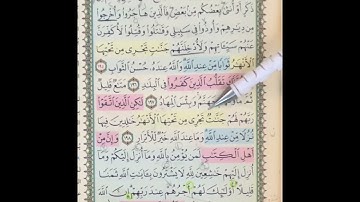 ذَكَرٍ أَوْ أُنثَىٰ بَعْضُكُم مِّنۢ بَعْضٍ فَٱلَّذِينَ هَاجَرُوا۟ وَأُخْرِجُوا۟
مِن دِيَـٰرِهِمْ وَأُوذُوا۟ فِى سَبِيلِى وَقَـٰتَلُوا۟ وَقُتِلُوا۟ لَأُكَفِّرَنَّ
عَنْهُمْ سَيِّـَٔاتِهِمْ وَلَأُدْخِلَنَّهُمْ جَنَّـٰتٍ تَجْرِى مِن تَحْتِهَا
ٱلْأَنْهَـٰرُ ثَوَابًا مِّنْ عِندِ ٱللَّهِ وَٱللَّهُ عِندَهُۥ حُسْنُ ٱلثَّوَابِ ١٩٥
تَقَلُّبُ ٱلَّذِينَ كَفَرُوا۟ فِى ٱلْبِلَـٰدِ ١٩٦ مَتَـٰعٌ قَلِيلٌ
ثُمَّ مَأْوَىٰهُمْ وَبِئْسَ ٱلْمِهَادُ ١٩٧ لَـٰكِنِ ٱلَّذِينَ ٱتَّقَوْا۟
رَبَّهُمْ لَهُمْ جَنَّـٰتٌ تَجْرِى مِن تَحْتِهَا ٱلْأَنْهَـٰرُ خَـٰلِدِينَ فِيهَا
نُزُلًا مِّنْ عِندِ ٱللَّهِ وَمَا عِندَ ٱللَّهِ خَيْرٌ لِّلْأَبْرَارِ ١٩٨ وَإِنَّ مِنْ
أَهْلِ ٱلْكِتَـٰبِ لَمَن يُؤْمِنُ بِٱللَّهِ وَمَآ أُنزِلَ إِلَيْكُمْ وَمَآ
أُنزِلَ إِلَيْهِمْ خَـٰشِعِينَ لِلَّهِ لَا يَشْتَرُونَ بِـَٔايَـٰتِ ٱللَّهِ ثَمَنًا
قَلِيلًا أُو۟لَـٰٓئِكَ لَهُمْ أَجْرُهُمْ عِندَ رَبِّهِمْ إِنَّ ٱللَّهَ